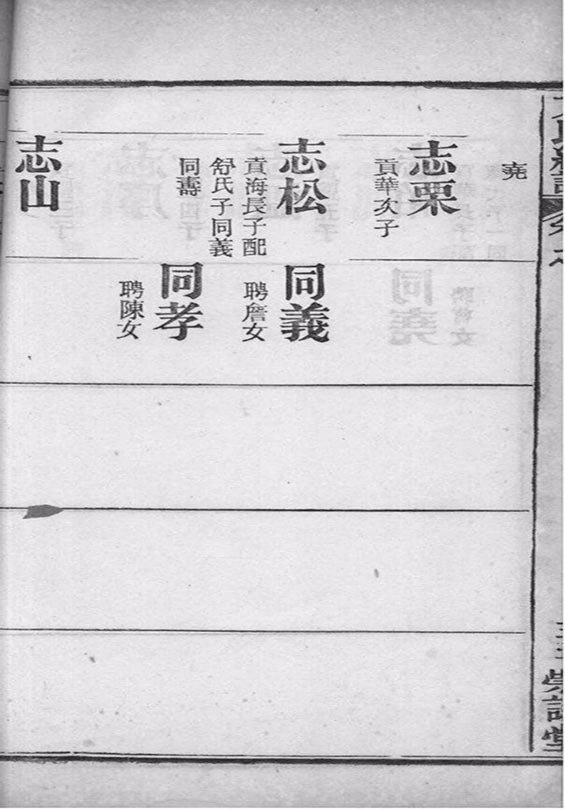 堯
志栗
貢華次子
志松
貢海長子配
舒氏子同義
同壽
志山
同義
聘詹女
同孝
聘陳女